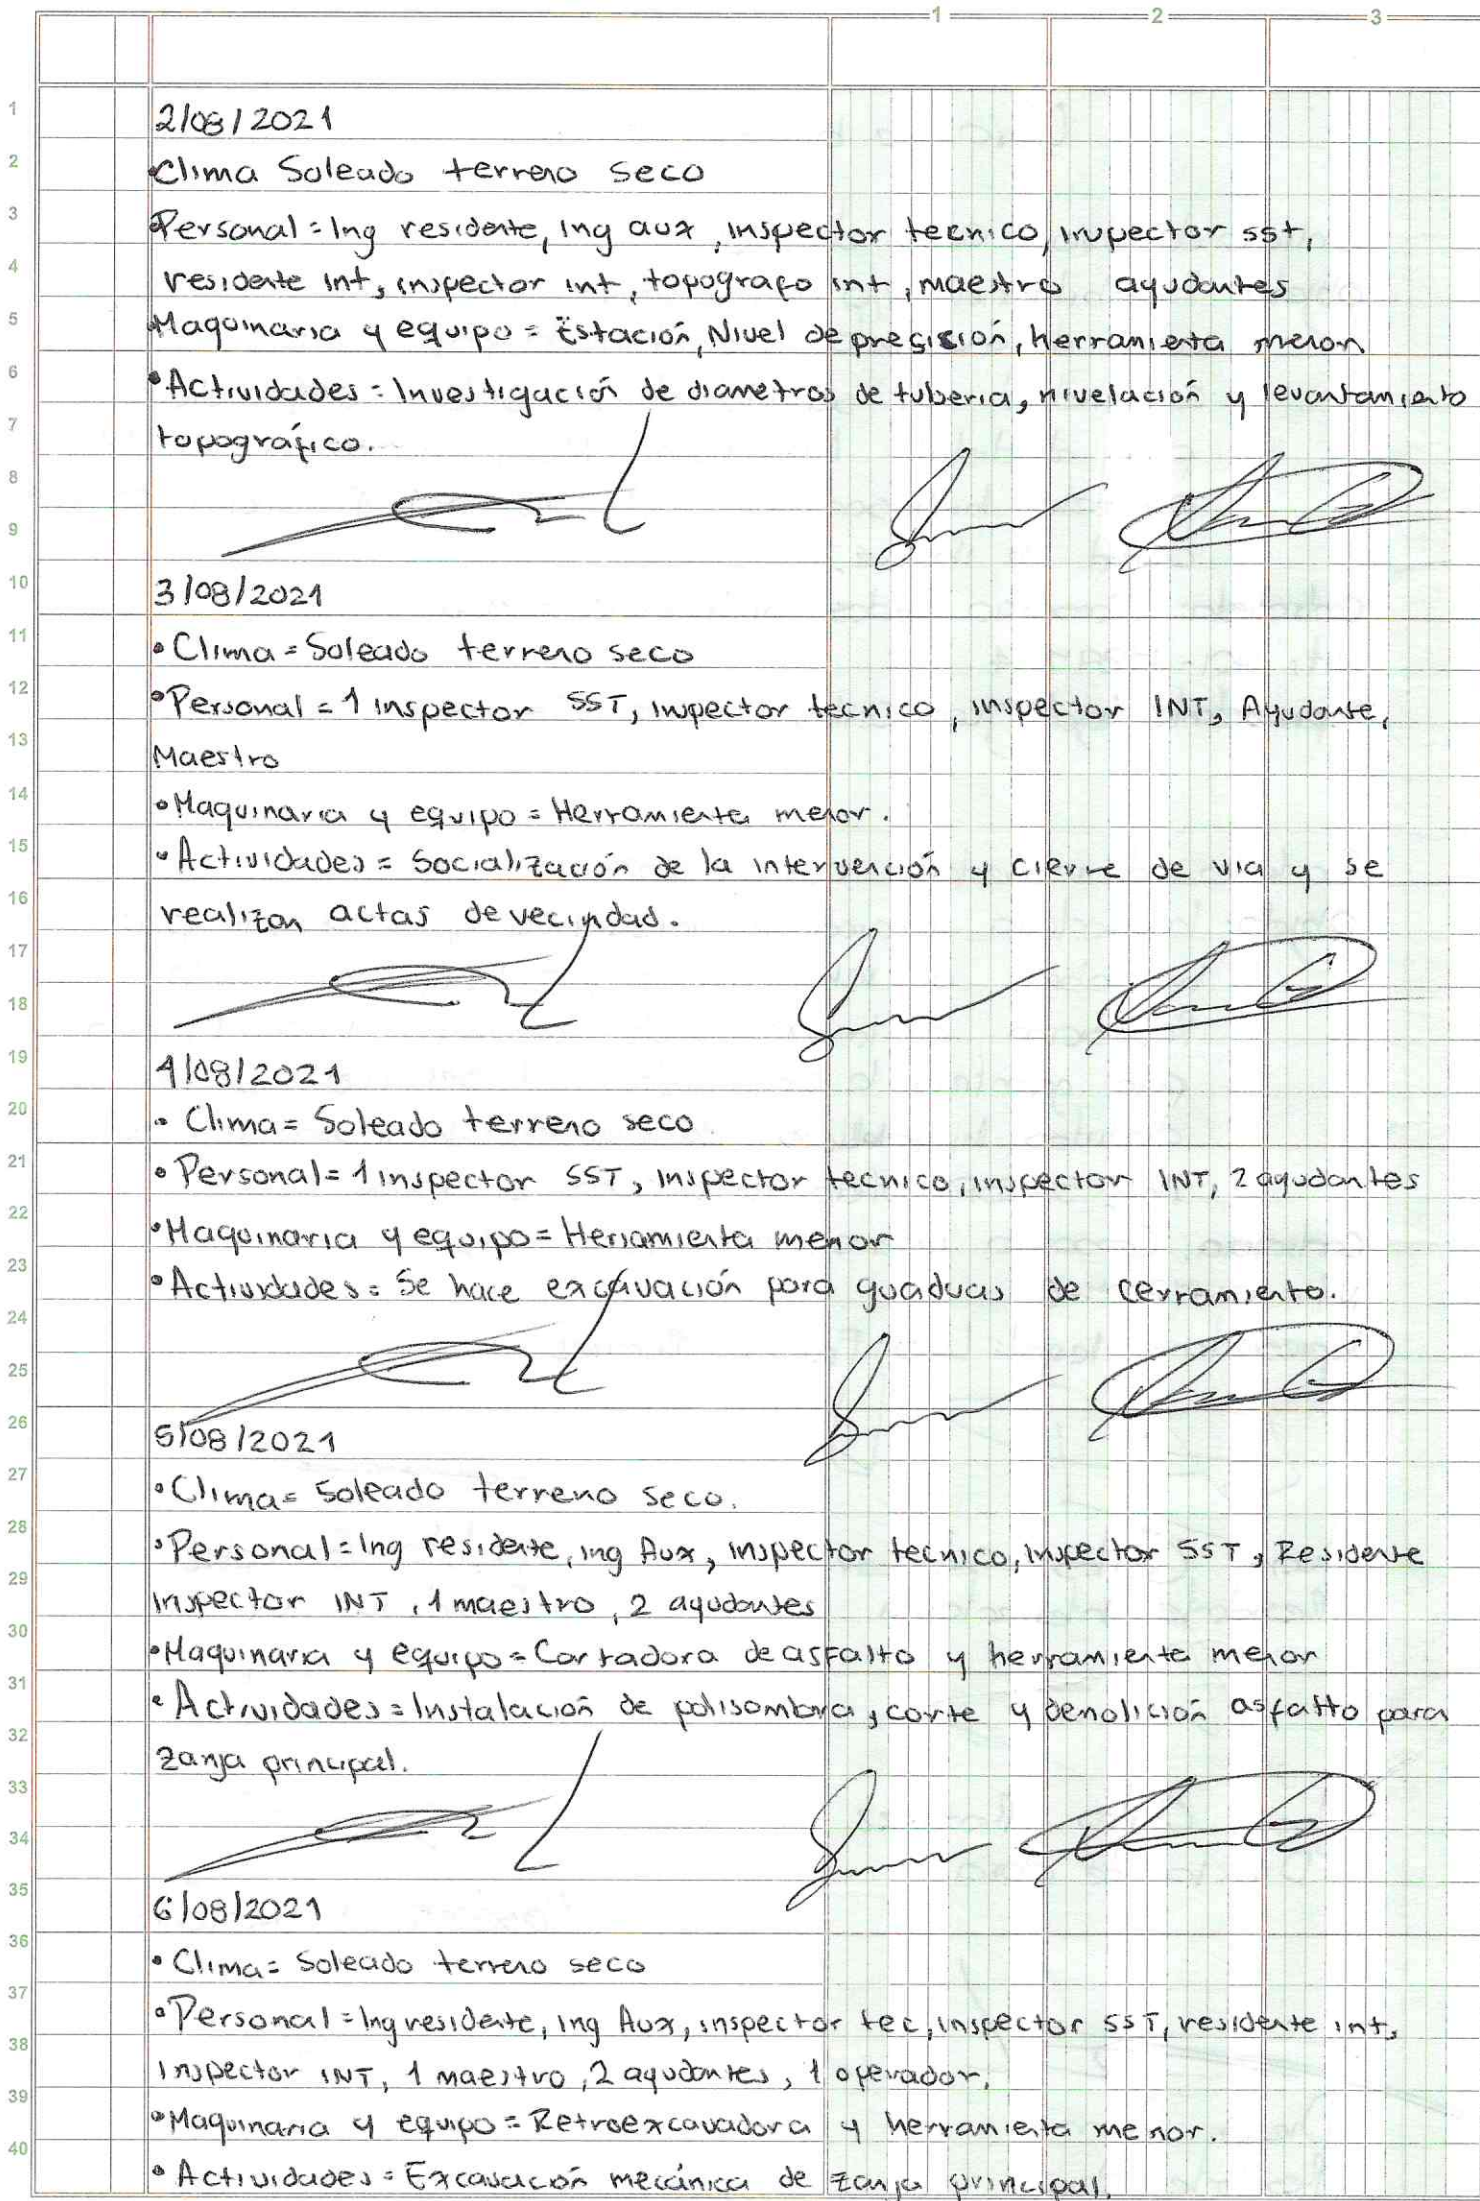 1 2 3
1 2/08/2021
2 •Clima Soleado terreno seco
3 •Personal = Ing residente, Ing aux, inspector tecnico, inspector sst,
4 residente int, inspector int, topografo int, maestro ayudantes
5 •Maquinaria y equipo = Estación, Nivel de precisión, herramienta menor
6 •Actividades = Investigación de diametros de tuberia, nivelación y levantamiento
7 topográfico.
8
9
10 3/08/2021
11 •Clima = Soleado terreno seco
12 •Personal = 1 inspector SST, inspector tecnico, inspector INT, Ayudante,
13 Maestro
14 •Maquinaria y equipo = Herramienta menor.
15 •Actividades = Socialización de la intervención y cierre de via y se
16 realizan actas de vecindad.
17
18
19 4/08/2021
20 •Clima = Soleado terreno seco
21 •Personal = 1 inspector SST, inspector tecnico, inspector INT, 2 ayudantes
22 •Maquinaria y equipo = Herramienta menor
23 •Actividades = Se hace excavación para guaduas de cerramiento.
24
25
26 5/08/2021
27 •Clima = Soleado terreno seco.
28 •Personal = Ing residente, ing Aux, inspector tecnico, inspector SST, Residente
29 inspector INT, 1 maestro, 2 ayudantes
30 •Maquinaria y equipo = Cortadora de asfalto y herramienta menor
31 •Actividades = Instalación de polisombra, corte y demolición asfalto para
32 zanja principal.
33
34
35 6/08/2021
36 •Clima = Soleado terreno seco
37 •Personal = Ing residente, ing Aux, inspector tec, inspector SST, residente int,
38 inspector INT, 1 maestro, 2 ayudantes, 1 operador.
39 •Maquinaria y equipo = Retroexcavadora y herramienta menor.
40 •Actividades = Excavación mecánica de zanja principal.